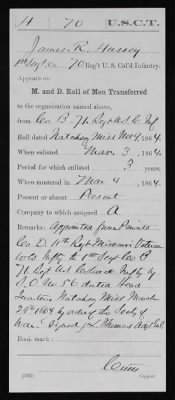 H 70 U.S.C.T.
James R. Hussey
1st Sgt, Co. , 70 Reg't U. S. Col'd Infantry.
Appears on
M. and D. Roll of Men Transferred
to the organization named above,
from Co. B 71 Regt U S C Inf
Roll dated Natchez Miss Nov 9, 1864.
When enlisted Mar. 3, 1864.
Period for which enlisted 3 years.
When mustered in Mar 4, 1864.
Present or absent Present
Company to which assigned A
Remarks: Appointed from Private
Co. D. 11th Regt Missouri Veteran
Vols Infty to 1st Sergt Co B
71 Regt U S Colored Infty by
S.O. No 56 dated Head
Quarters Natchez Miss March
24th 1864 by order of the Secty of
War. Signed L Thomas Adjt Genl.
Book mark:
(312) Copyist.